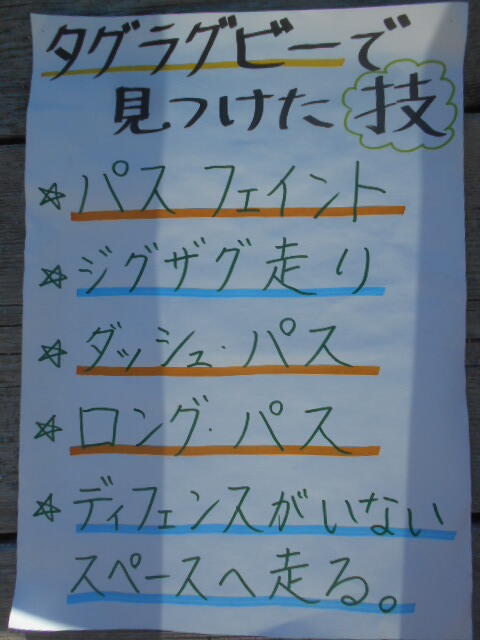 タグラグビーで
見つけた技
☆パス フェイント
☆ジグザグ走り
☆ダッシュ・パス
☆ロング・パス
☆ディフェンスがいない
スペースへ走る。